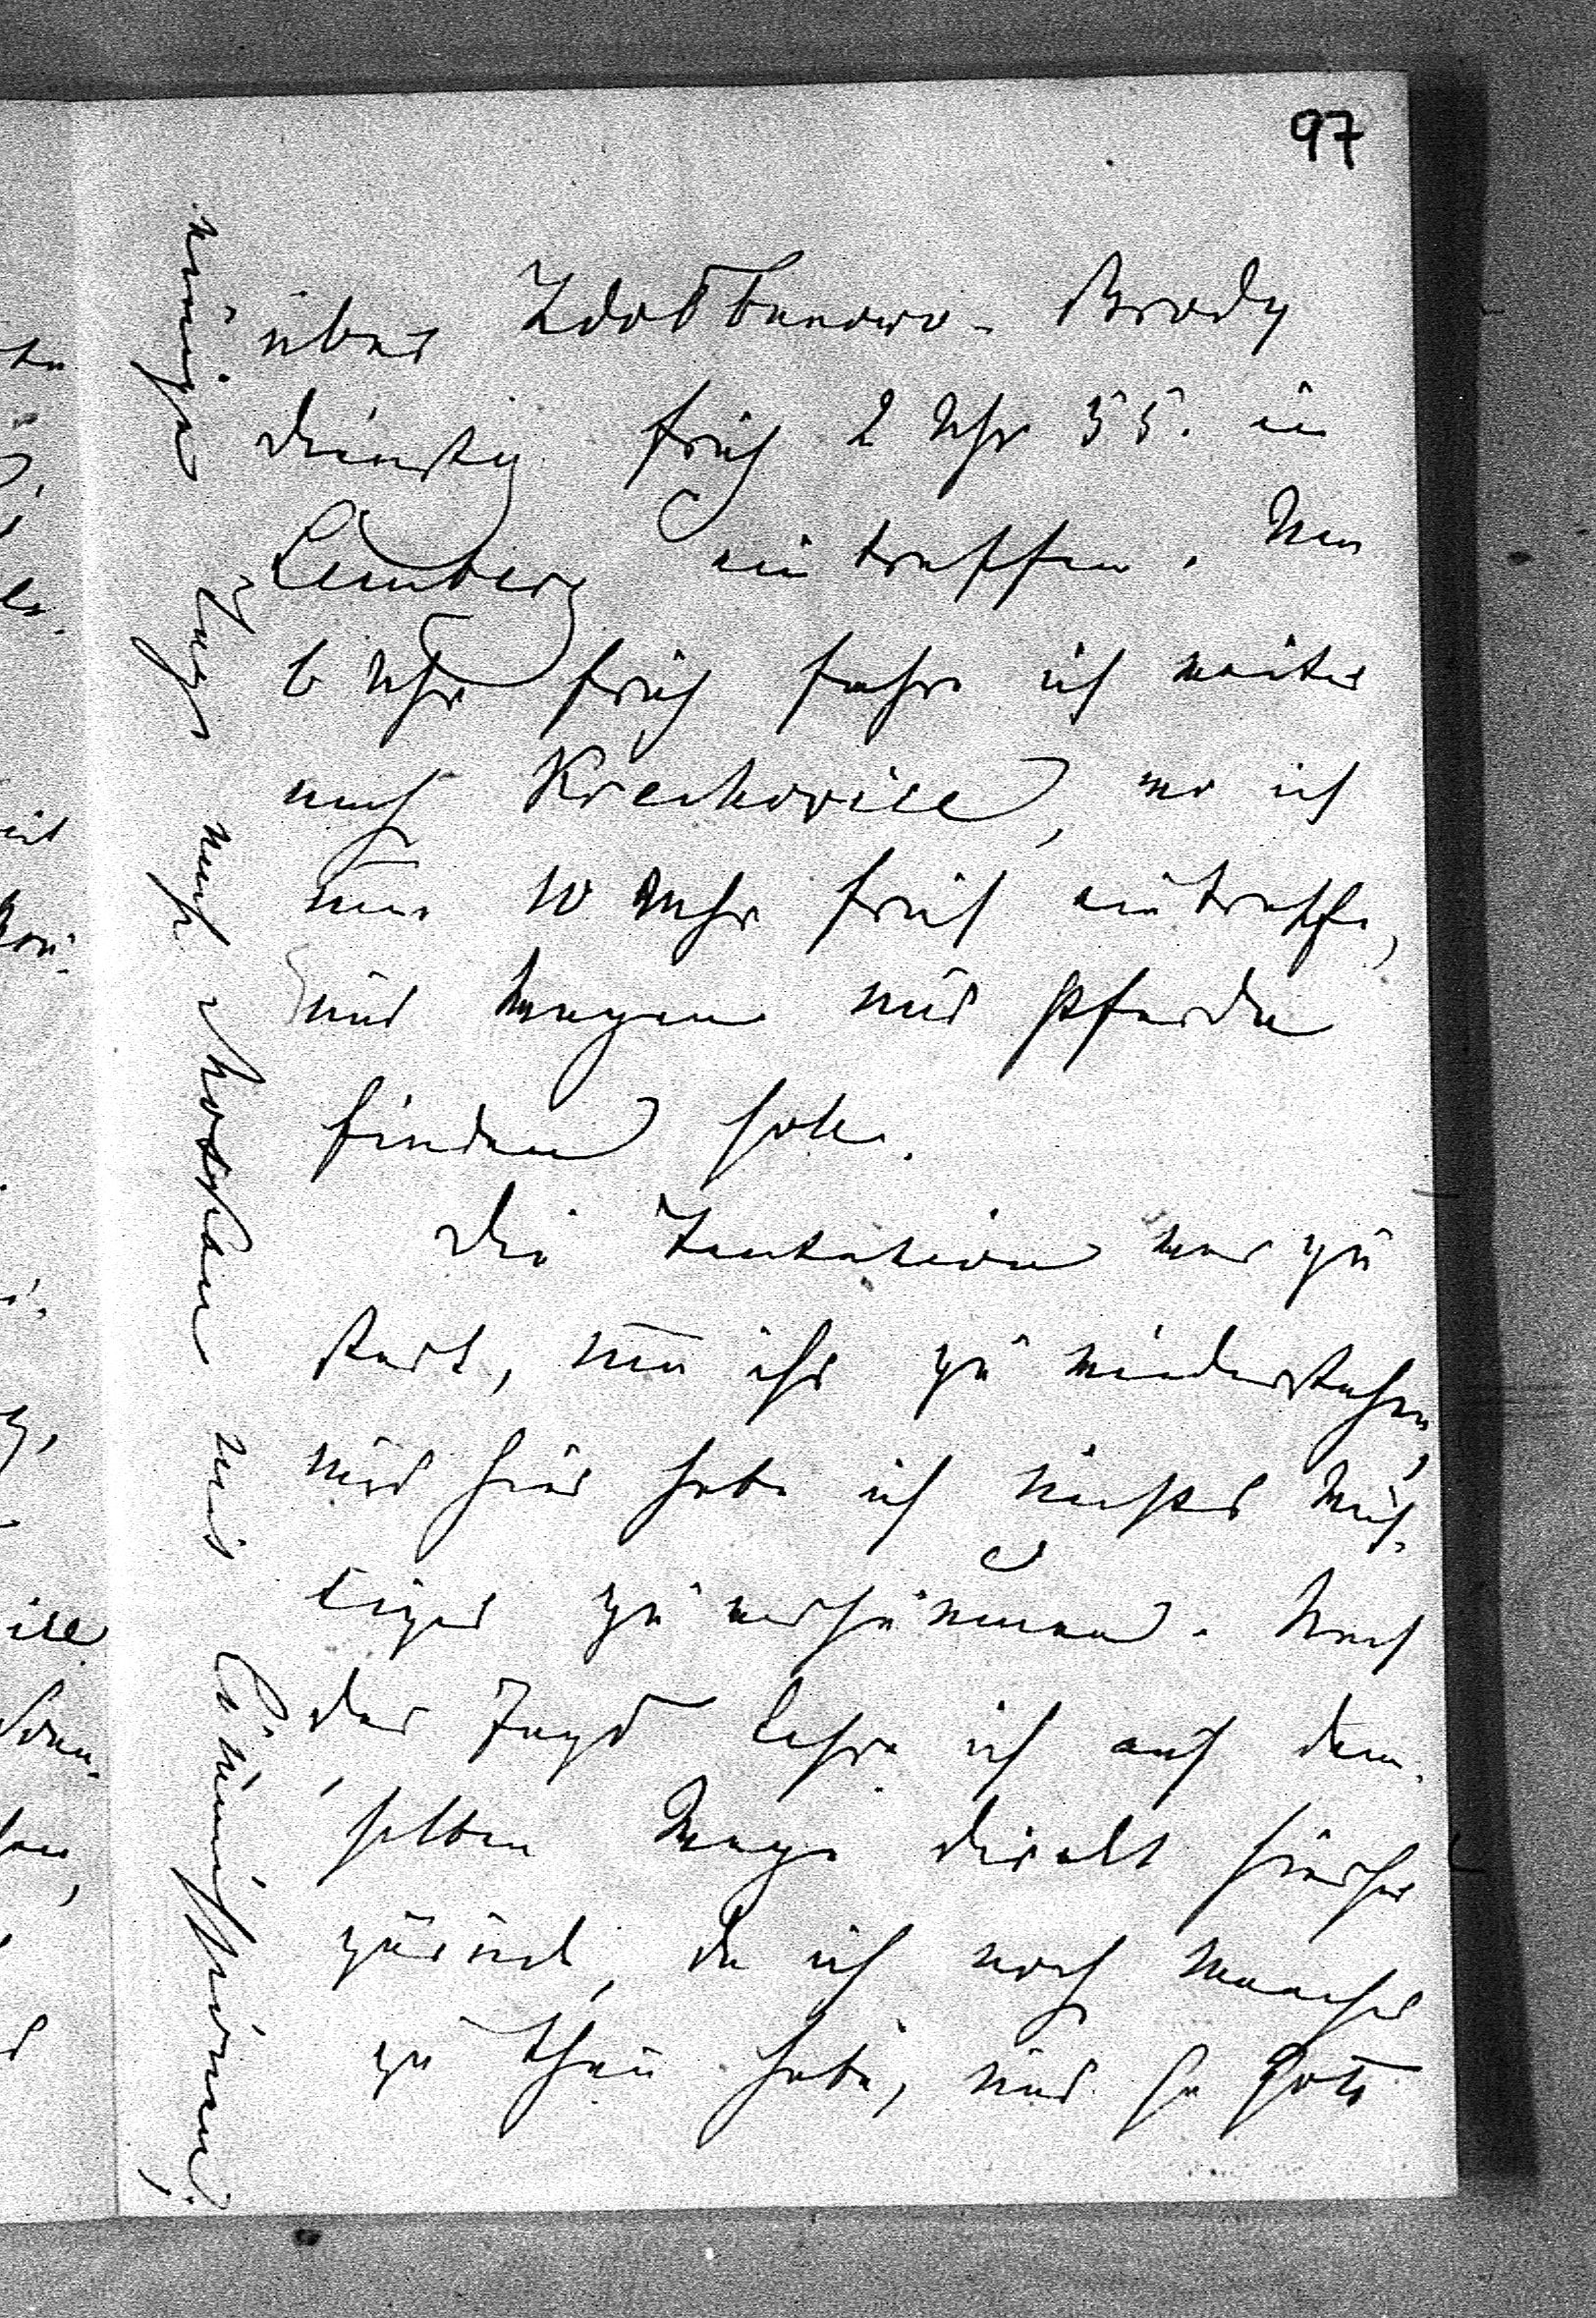 97
über Zdolbunowo-Brody
Dienstag früh 2 Uhr 55. in
Lemberg eintreffen. Um
6 Uhr früh fahre ich weiter
nach Krechowice, wo ich
um 10 Uhr früh eintreffe,
und Wagen und Pferde
finden soll.
Die Tentation war zu
stark, um ihr zu widerstehen,
und hier habe ich nichts Wich-
tiges zu versäumen. Nach
der Jagd kehre ich auf dem-
selben Wege direkt hierher
zurück, da ich noch manches
zu thun habe, und so Gott
einige Tage nach Moskau